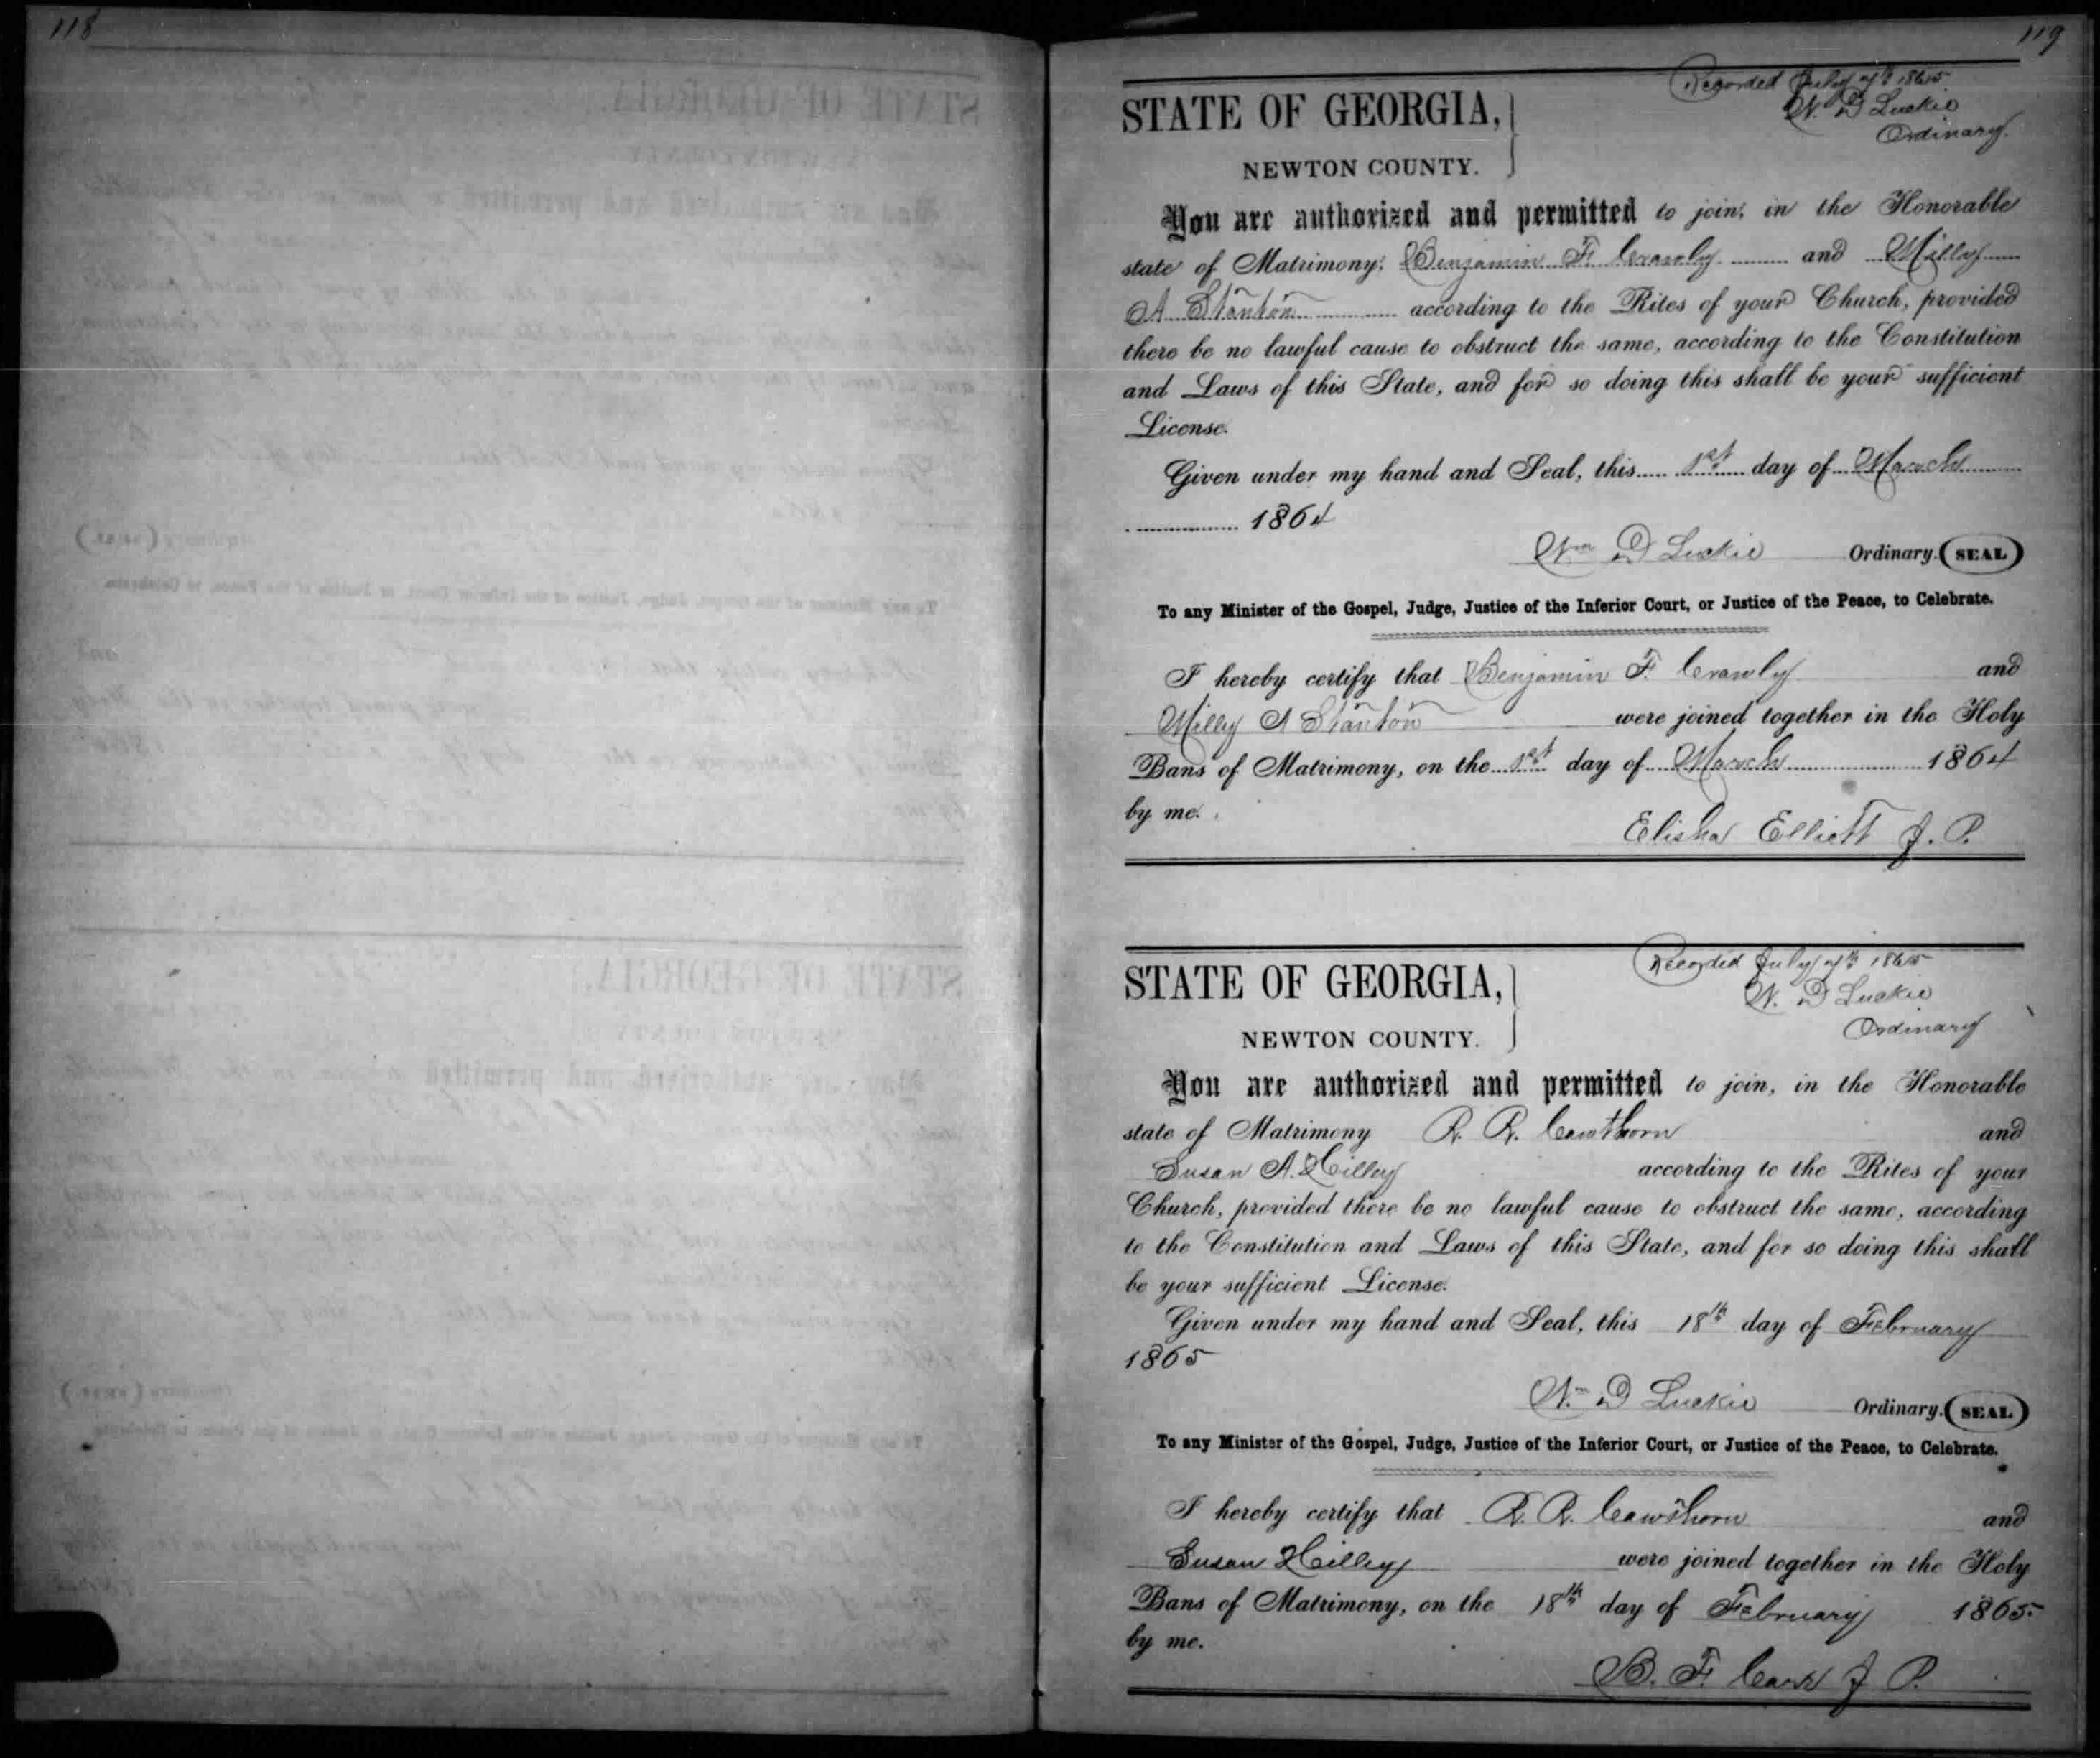 118
119
Recorded July 7th 1865
W. D Luckie
Ordinary.
STATE OF GEORGIA,
NEWTON COUNTY.
You are authorized and permitted to join, in the Honorable
state of Matrimony, Benjamin F Crawly and Milly
A Stanton according to the Rites of your Church, provided
there be no lawful cause to obstruct the same, according to the Constitution
and Laws of this State, and for so doing this shall be your sufficient
License.
Given under my hand and Seal, this 1st day of March
1864
Wm D Luckie Ordinary. (SEAL)
To any Minister of the Gospel, Judge, Justice of the Inferior Court, or Justice of the Peace, to Celebrate.
I hereby certify that Benjamin F. Crawly and
Milly A Stanton were joined together in the Holy
Bans of Matrimony, on the 1st day of March 1864
by me.
Elisha Elliott J. P.
Recorded July 7th 1865
W. D Luckie
Ordinary
STATE OF GEORGIA,
NEWTON COUNTY.
You are authorized and permitted to join, in the Honorable
state of Matrimony R. R. Cawthorn and
Susan A. Hilley according to the Rites of your
Church, provided there be no lawful cause to obstruct the same, according
to the Constitution and Laws of this State, and for so doing this shall
be your sufficient License.
Given under my hand and Seal, this 18th day of February
1865
Wm D Luckie Ordinary. (SEAL)
To any Minister of the Gospel, Judge, Justice of the Inferior Court, or Justice of the Peace, to Celebrate.
I hereby certify that R. R. Cawthorn and
Susan Hilley were joined together in the Holy
Bans of Matrimony, on the 18th day of February 1865
by me.
B. F. Carr J P.